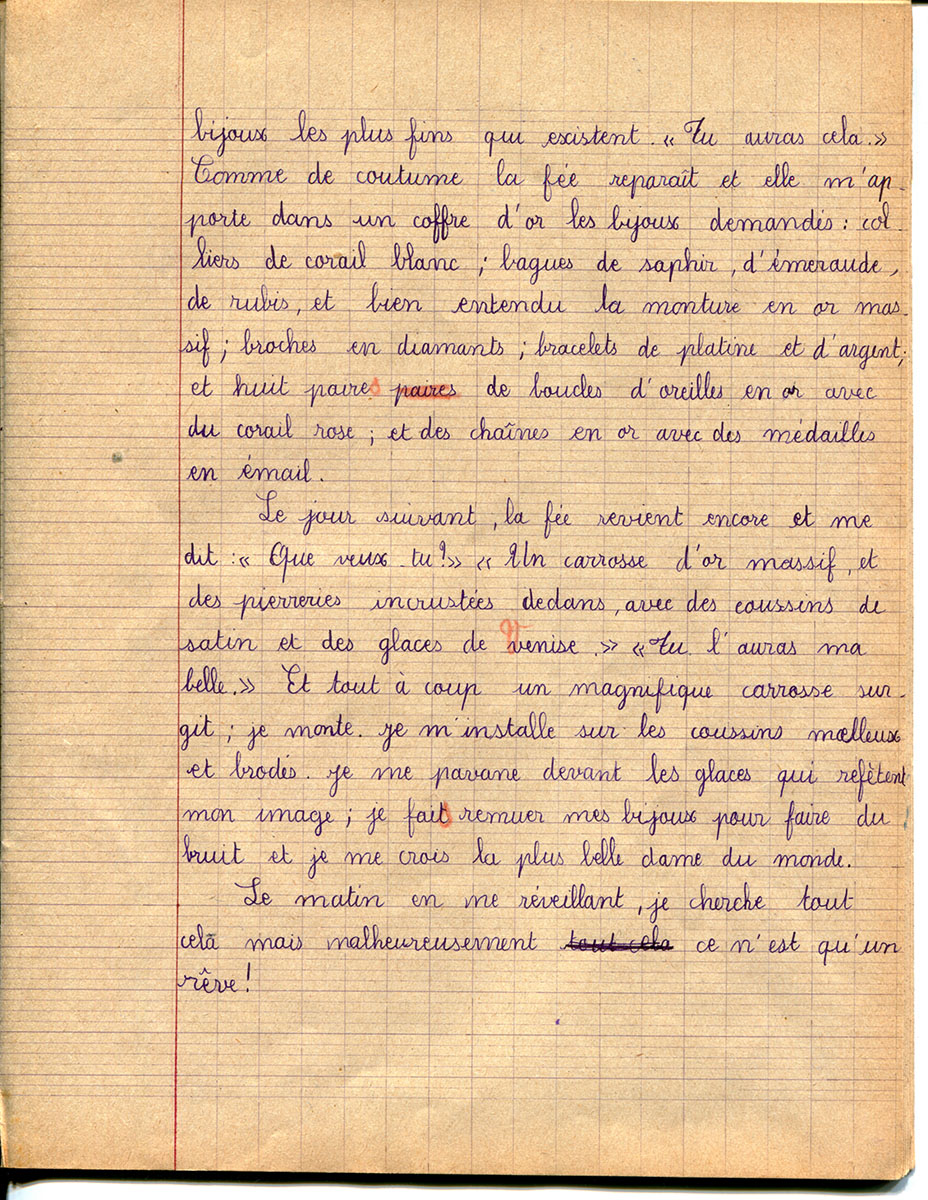 bijoux les plus fins qui existent. « Tu auras cela. »
Comme de coutume la fée reparaît et elle m'ap-
porte dans un coffre d'or les bijoux demandés : col-
liers de corail blanc ; bagues de saphir, d'émeraude,
de rubis, et bien entendu la monture en or mas-
sif ; broches en diamants ; bracelets de platine et d'argent ;
et huit paires paires de boucles d'oreilles en or avec
du corail rose ; et des chaînes en or avec des médailles
en émail.
Le jour suivant, la fée revient encore et me
dit : « Que veux-tu ? » « Un carrosse d'or massif, et
des pierreries incrustées dedans, avec des coussins de
satin et des glaces de Venise. » « Tu l'auras ma
belle. » Et tout à coup un magnifique carrosse sur-
git ; je monte. Je m'installe sur les coussins mœlleux
et brodés. Je me pavane devant les glaces qui refètent
mon image ; je fais remuer mes bijoux pour faire du
bruit et je me crois la plus belle dame du monde.
Le matin en me réveillant, je cherche tout
celà mais malheureusement tout cela ce n'est qu'un
rêve !